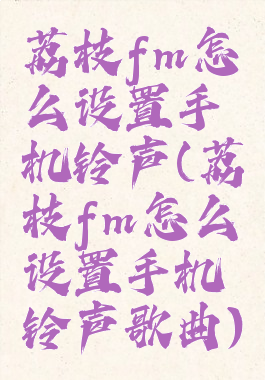 荔枝fm怎
么设置手
机铃声(荔
枝fm怎么
设置手机
铃声歌曲)